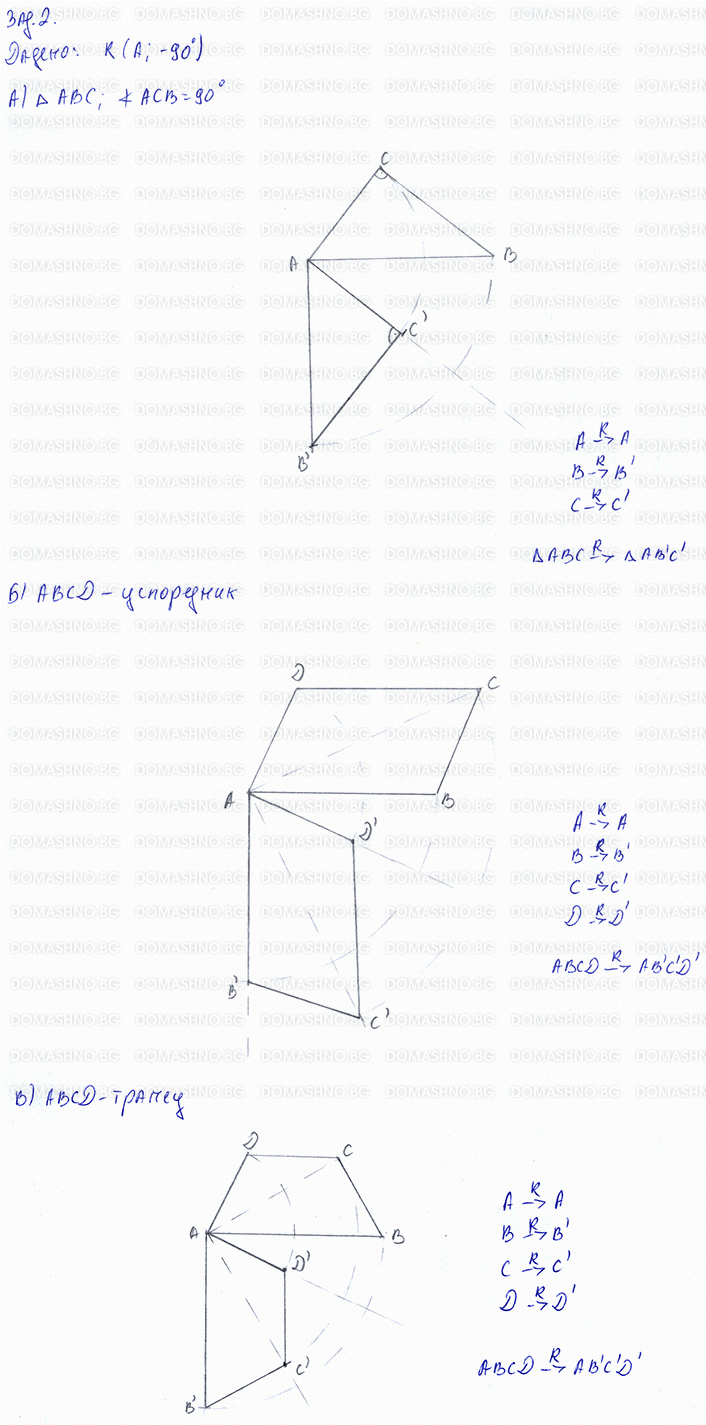 Зад.2.
Дадено: R(A; -90°)
А) △ABC; ∢ACB=90°
C
A
B
C'
B'
A →ᴿ A
B →ᴿ B'
C →ᴿ C'
△ABC →ᴿ △AB'C'
Б) ABCD - успоредник
D
C
A
B
D'
B'
C'
A →ᴿ A
B →ᴿ B'
C →ᴿ C'
D →ᴿ D'
ABCD →ᴿ AB'C'D'
В) ABCD - трапец
D
C
A
B
D'
C'
B'
A →ᴿ A
B →ᴿ B'
C →ᴿ C'
D →ᴿ D'
ABCD →ᴿ AB'C'D'
DOMASHNO.BG